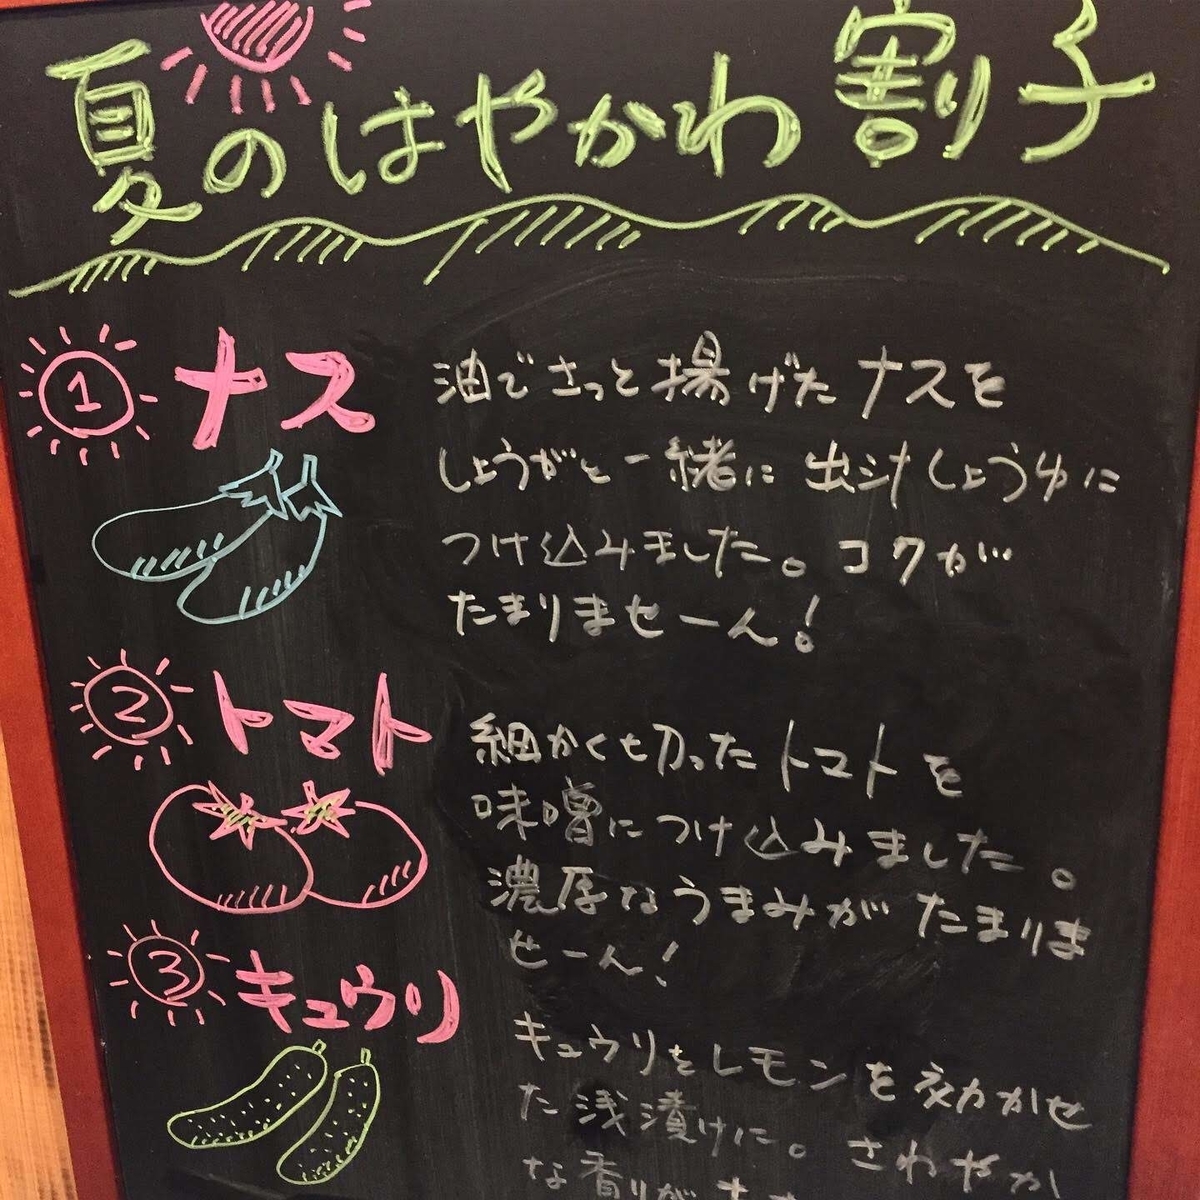 夏のはやかわ割子
1 ナス
油でさっと揚げたナスを
しょうがと一緒に出汁しょうゆに
つけ込みました。コクが
たまりませーん!
2 トマト
細かく切ったトマトを
味噌につけ込みました。
濃厚なうまみがたまりま
せーん!
3 キュウリ
キュウリをレモンを効かせ
た浅漬けに。さわやか
な香りが